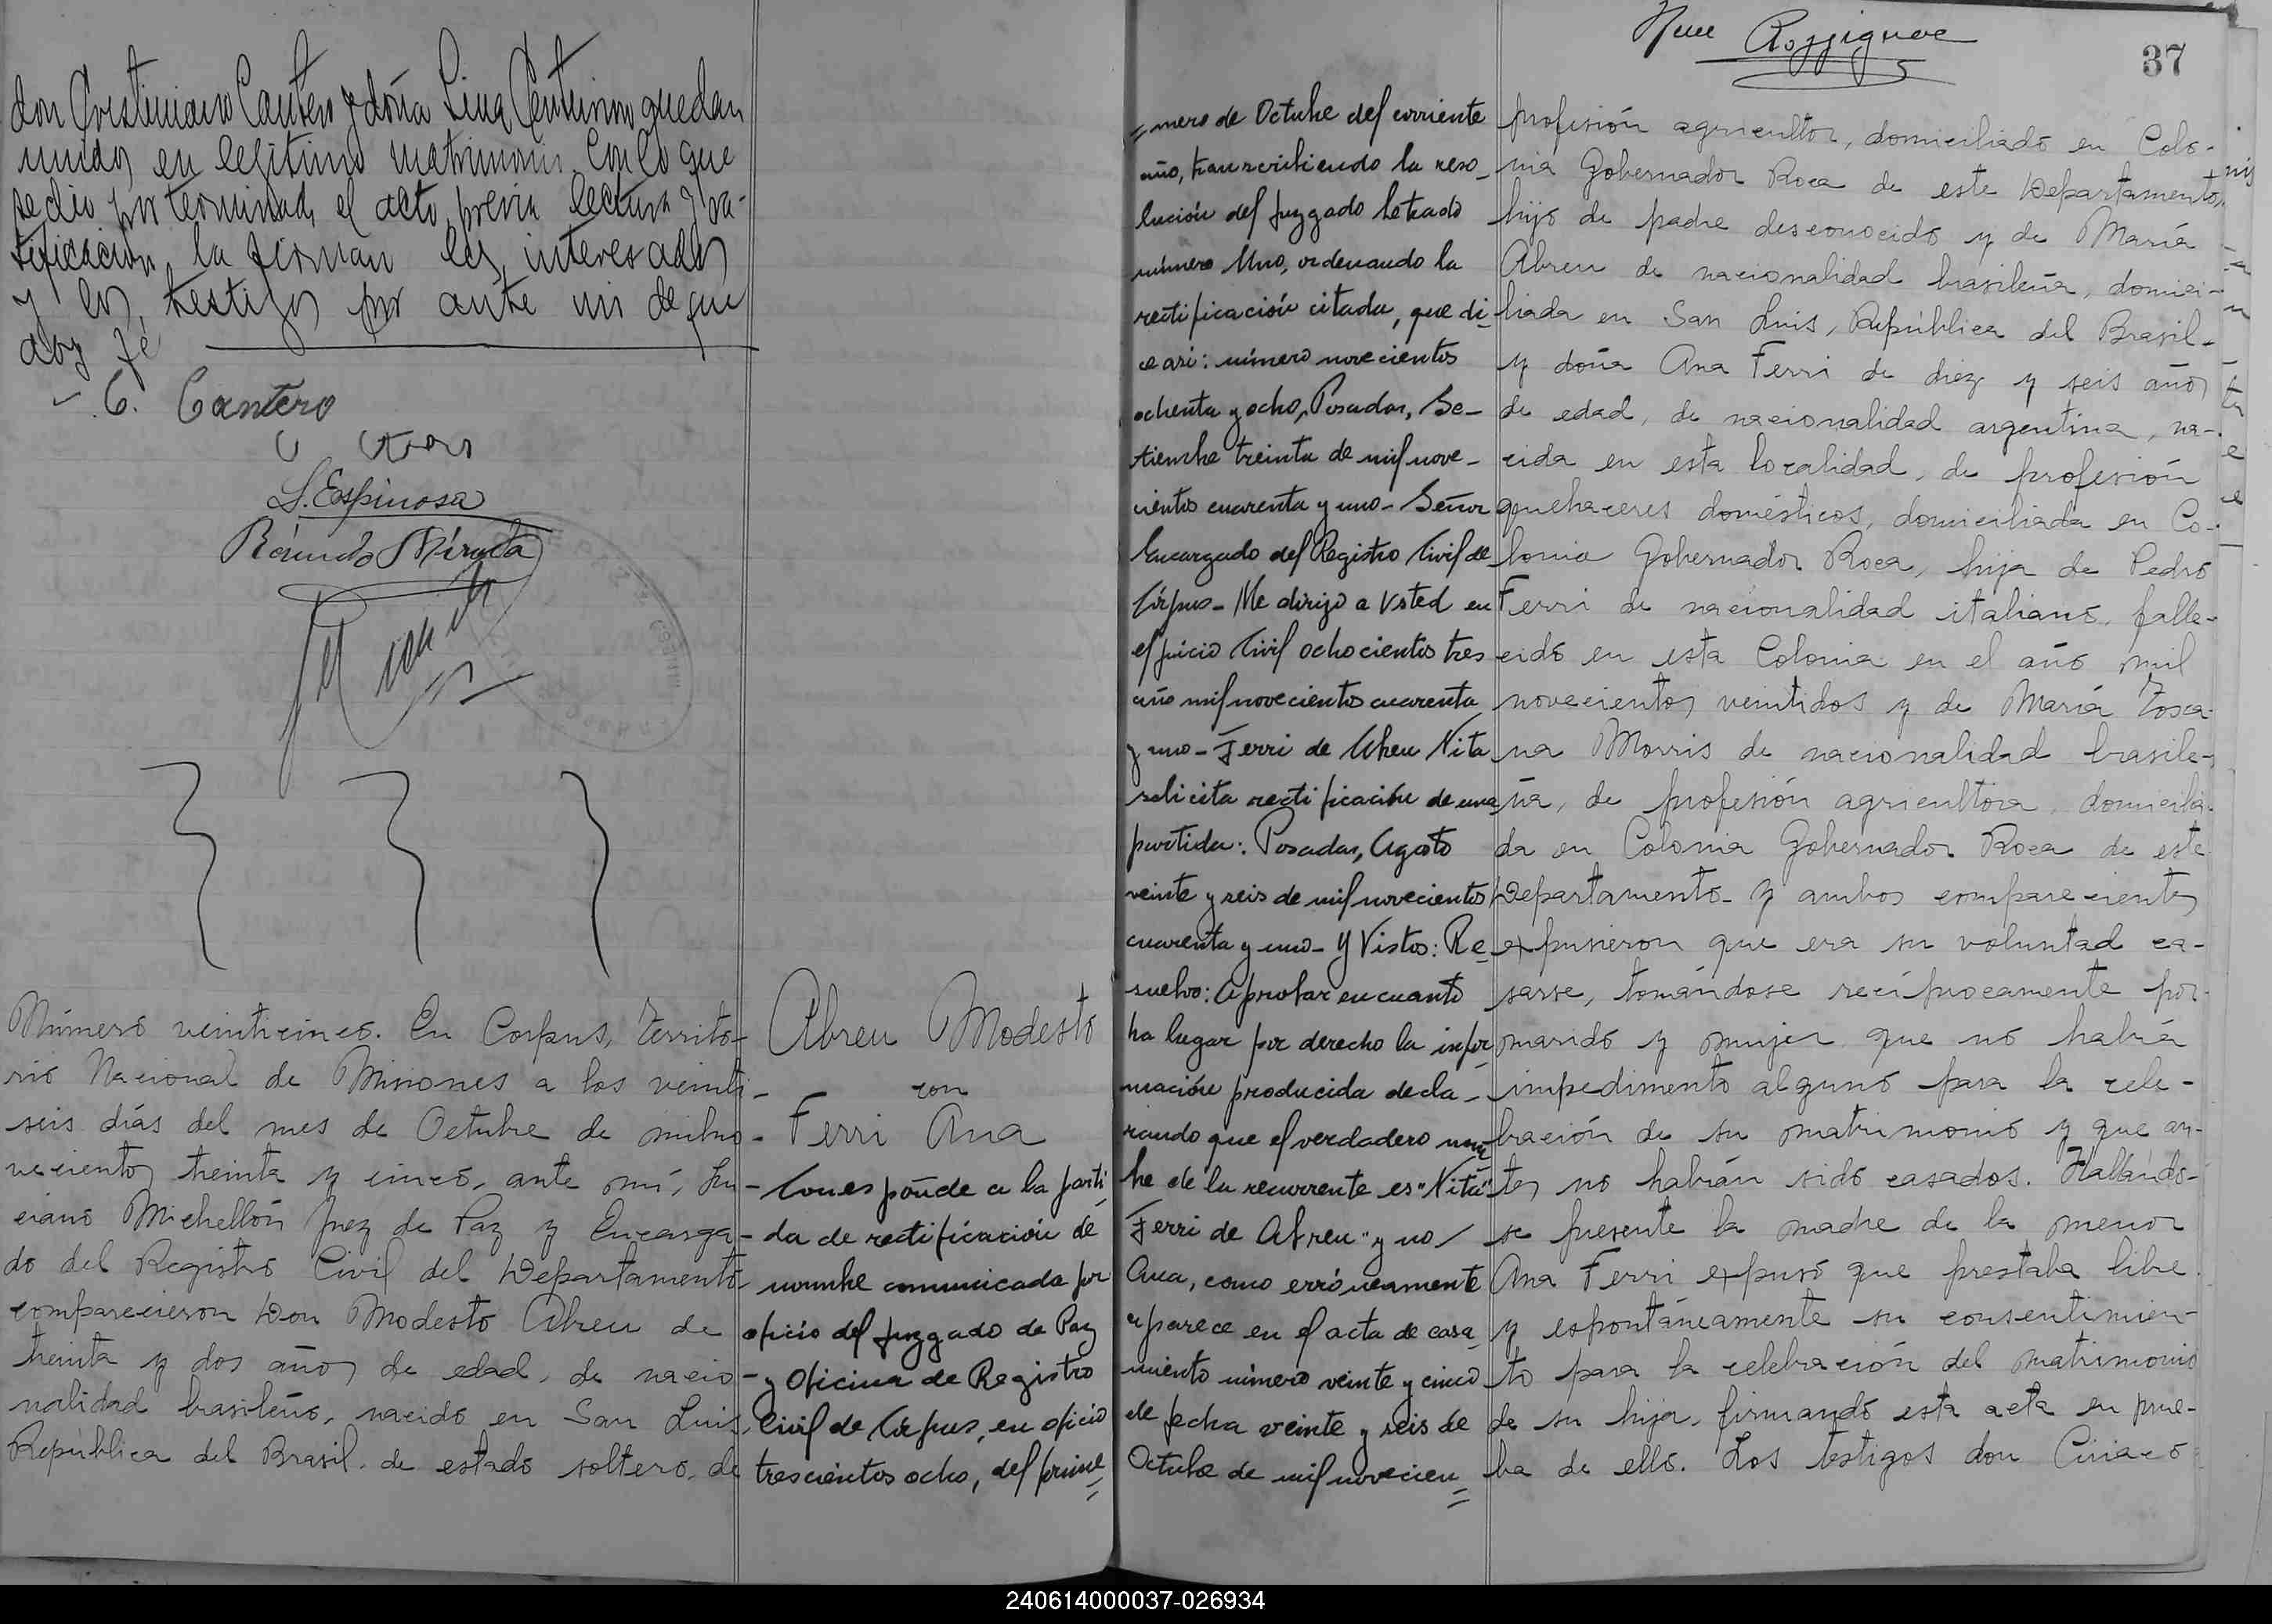 don Cristiniano Cantero y doña Lina Centurion quedan
unidos en legitimo matrimonio. Con lo que
se dio por terminado el acto, previa lectura y ra-
tificación, la firman los interesados
y los testigos por ante mi de que
doy fé
C. Cantero
L. Espinosa
Abreu Modesto
con
Ferri Ana
Número veinticinco. En Corpus, Territo-
rio Nacional de Misiones a los veinti-
seis días del mes de Octubre de mil no-
vecientos treinta y cinco, ante mí, Lu-
ciano Michellón Juez de Paz y Encarga-
do del Registro Civil del Departamento
comparecieron Don Modesto Abreu de
treinta y dos años de edad, de nacio-
nalidad brasileño, nacido en San Luis,
República del Brasil, de estado soltero, de
Corresponde a la parti
da de rectificación de
nombre comunicada por
oficio del Juzgado de Paz
y Oficina de Registro
Civil de Córpus, en oficio
trescientos ocho, del prime
=
37
= mero de Octubre del corriente
año, transcribiendo la reso-
lución del Juzgado Letrado
número Uno, ordenando la
rectificación citada, que di-
ce asi: número novecientos
ochenta y ocho, Posadas, Se-
tiembre treinta de mil nove-
cientos cuarenta y uno- Señor
Encargado del Registro Civil de
Córpus- Me dirijo a Usted en
el juicio Civil ochocientos tres
año mil novecientos cuarenta
y uno- Ferri de Abreu Nita
solicita rectificación de una
partida: Posadas, Agosto
veinte y seis de mil novecientos
cuarenta y uno- Y Vistos: Re-
suelvo: Aprobar en cuanto
ha lugar por derecho la infor
mación producida decla-
rando que el verdadero nom
bre de la recurrente es "Nita"
Ferri de Abreu" y no
Ana, como erróneamente
aparece en el acta de casa
miento número veinte y cinco
de fecha veinte y seis de
Octubre de mil novecien
=
profesión agricultor, domiciliado en Colo-
nia Gobernador Roca de este Departamento,
hijo de padre desconocido y de María
Abreu de nacionalidad brasileña, domici-
liada en San Luis, República del Brasil-
y doña Ana Ferri de diez y seis años
de edad, de nacionalidad argentina, na-
cida en esta localidad, de profesión
quehaceres domésticos, domiciliada en Co-
lonia Gobernador Roca, hija de Pedro
Ferri de nacionalidad italiano, falle-
cido en esta Colonia en el año mil
novecientos veintidos y de María Tosca-
na Morris de nacionalidad brasile-
ña, de profesión agricultora, domicilia-
da en Colonia Gobernador Roca de este
Departamento- Y ambos comparecientes
expusieron que era su voluntad ca-
sarse, tomándose recíprocamente por
marido y mujer que no había
impedimento alguno para la cele-
bración de su matrimonio y que an-
tes no habían sido casados. Hallándo-
se presente la madre de la menor
Ana Ferri expuso que prestaba libre
y espontáneamente su consentimien-
to para la celebración del matrimonio
de su hija, firmando esta acta en prue-
ba de ello. Los testigos don Ciriaco
240614000037-026934